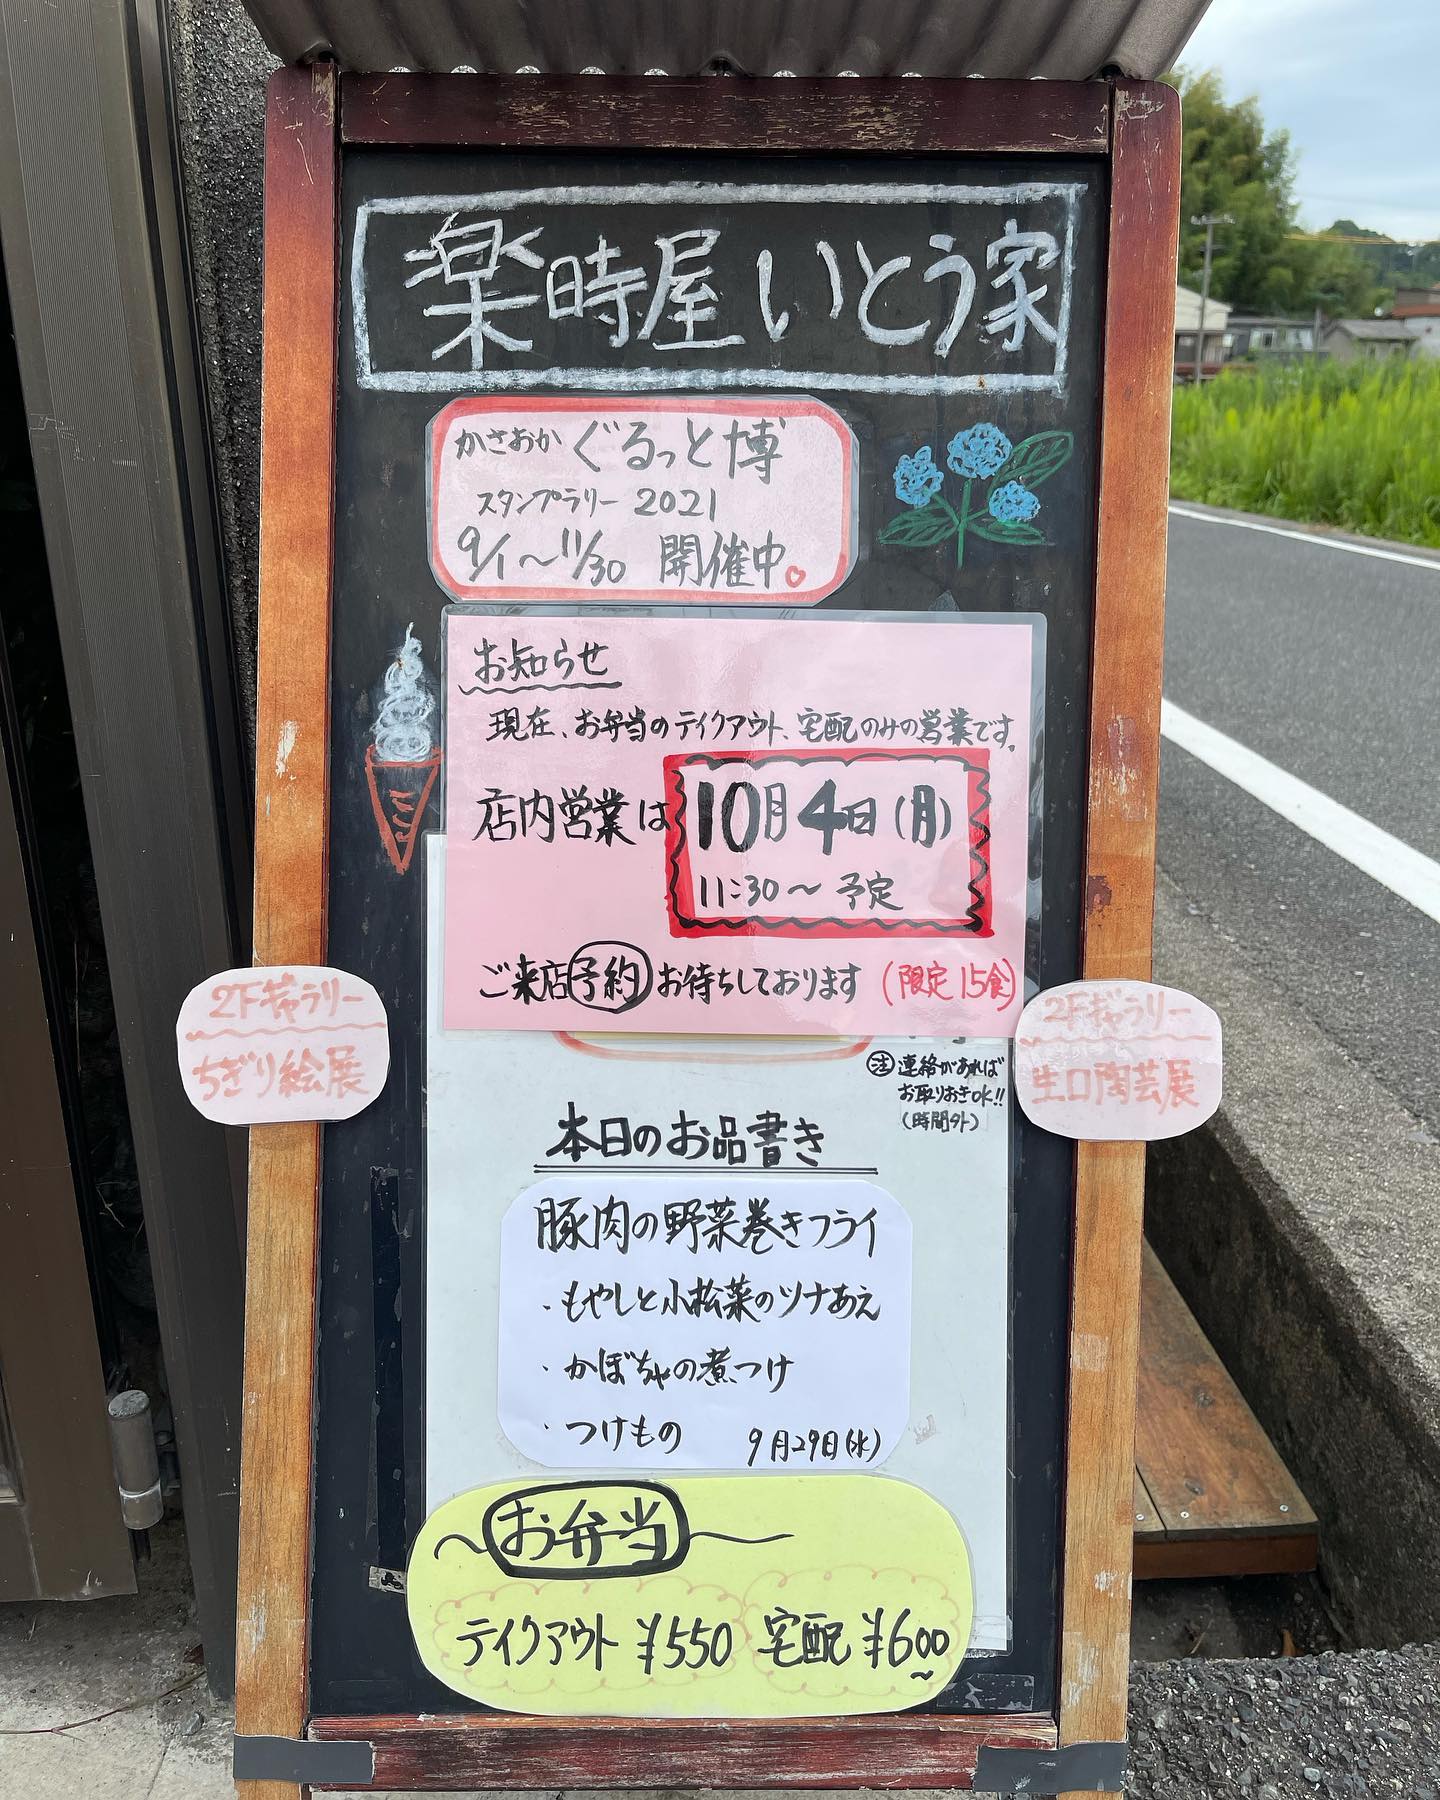 楽時屋いとう家
かさおか ぐるっと博
スタンプラリー 2021
9/1〜11/30 開催中。
お知らせ
現在、お弁当のテイクアウト、宅配のみの営業です。
店内営業は 10月4日(月)
11:30〜 予定
ご来店予約お待ちしております (限定15食)
2Fギャラリー
ちぎり絵展
2Fギャラリー
生口陶芸展
注 連絡があれば
お取りおきOK!!
(時間外)
本日のお品書き
豚肉の野菜巻きフライ
・もやしと小松菜のツナあえ
・かぼちゃの煮つけ
・つけもの 9月29日(水)
〜お弁当〜
テイクアウト ¥550 宅配 ¥600〜